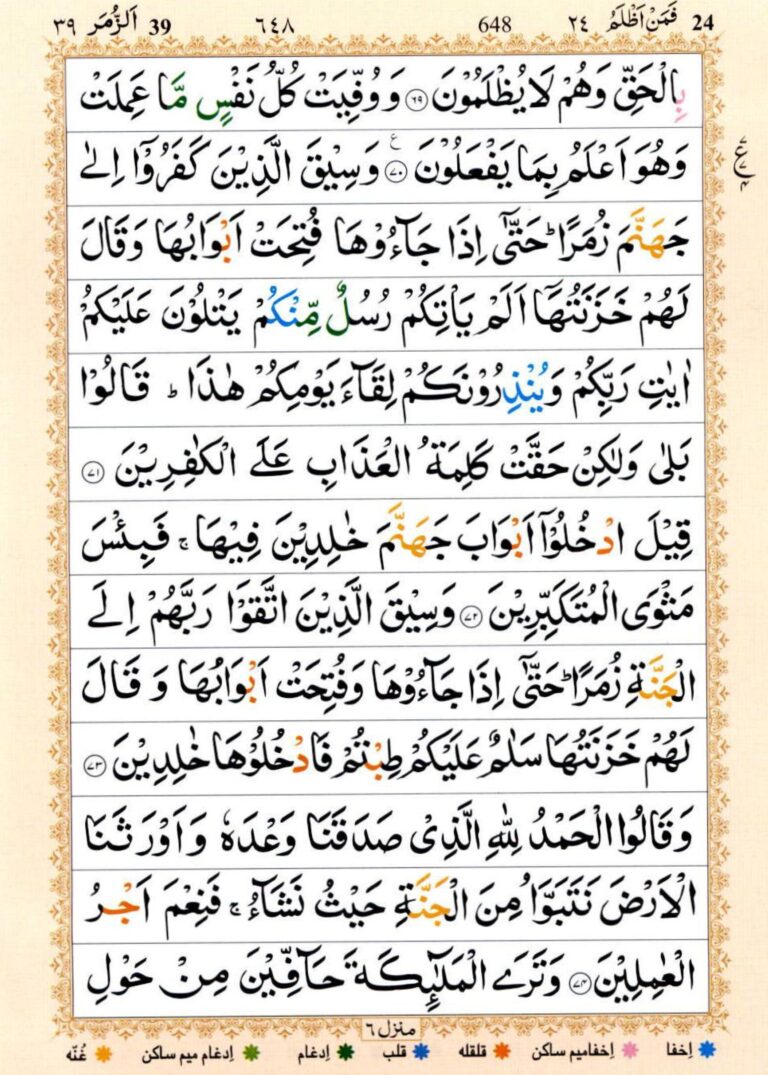 24 فَمَنْ اَظْلَمُ ٢٤ 648 ٦٤٨ 39 اَلزُّمَر ٣٩
بِالْحَقِّ وَهُمْ لَا يُظْلَمُوْنَ ۝٦٩ وَوُفِّيَتْ كُلُّ نَفْسٍ مَّا عَمِلَتْ
وَهُوَ اَعْلَمُ بِمَا يَفْعَلُوْنَ ۝٧٠ ع وَسِيْقَ الَّذِيْنَ كَفَرُوْۤا اِلٰى
جَهَنَّمَ زُمَرًا ؕ حَتّٰۤى اِذَا جَآءُوْهَا فُتِحَتْ اَبْوَابُهَا وَقَالَ
لَهُمْ خَزَنَتُهَاۤ اَلَمْ يَاْتِكُمْ رُسُلٌ مِّنْكُمْ يَتْلُوْنَ عَلَيْكُمْ
اٰيٰتِ رَبِّكُمْ وَيُنْذِرُوْنَكُمْ لِقَآءَ يَوْمِكُمْ هٰذَا ؕ قَالُوْا
بَلٰى وَلٰكِنْ حَقَّتْ كَلِمَةُ الْعَذَابِ عَلَى الْكٰفِرِيْنَ ۝٧١
قِيْلَ ادْخُلُوْۤا اَبْوَابَ جَهَنَّمَ خٰلِدِيْنَ فِيْهَا ۚ فَبِئْسَ
مَثْوَى الْمُتَكَبِّرِيْنَ ۝٧٢ وَسِيْقَ الَّذِيْنَ اتَّقَوْا رَبَّهُمْ اِلَى
الْجَنَّةِ زُمَرًا ؕ حَتّٰۤى اِذَا جَآءُوْهَا وَفُتِحَتْ اَبْوَابُهَا وَقَالَ
لَهُمْ خَزَنَتُهَا سَلٰمٌ عَلَيْكُمْ طِبْتُمْ فَادْخُلُوْهَا خٰلِدِيْنَ ۝٧٣
وَقَالُوا الْحَمْدُ لِلّٰهِ الَّذِيْ صَدَقَنَا وَعْدَهٗ وَاَوْرَثَنَا
الْاَرْضَ نَتَبَوَّاُ مِنَ الْجَنَّةِ حَيْثُ نَشَآءُ ۚ فَنِعْمَ اَجْرُ
الْعٰمِلِيْنَ ۝٧٤ وَتَرَى الْمَلٰٓئِكَةَ حَآفِّيْنَ مِنْ حَوْلِ
منزل ٦
اِخفا اِخفامیم ساکن قلقله قلب اِدغام اِدغام میم ساکن غُنّه